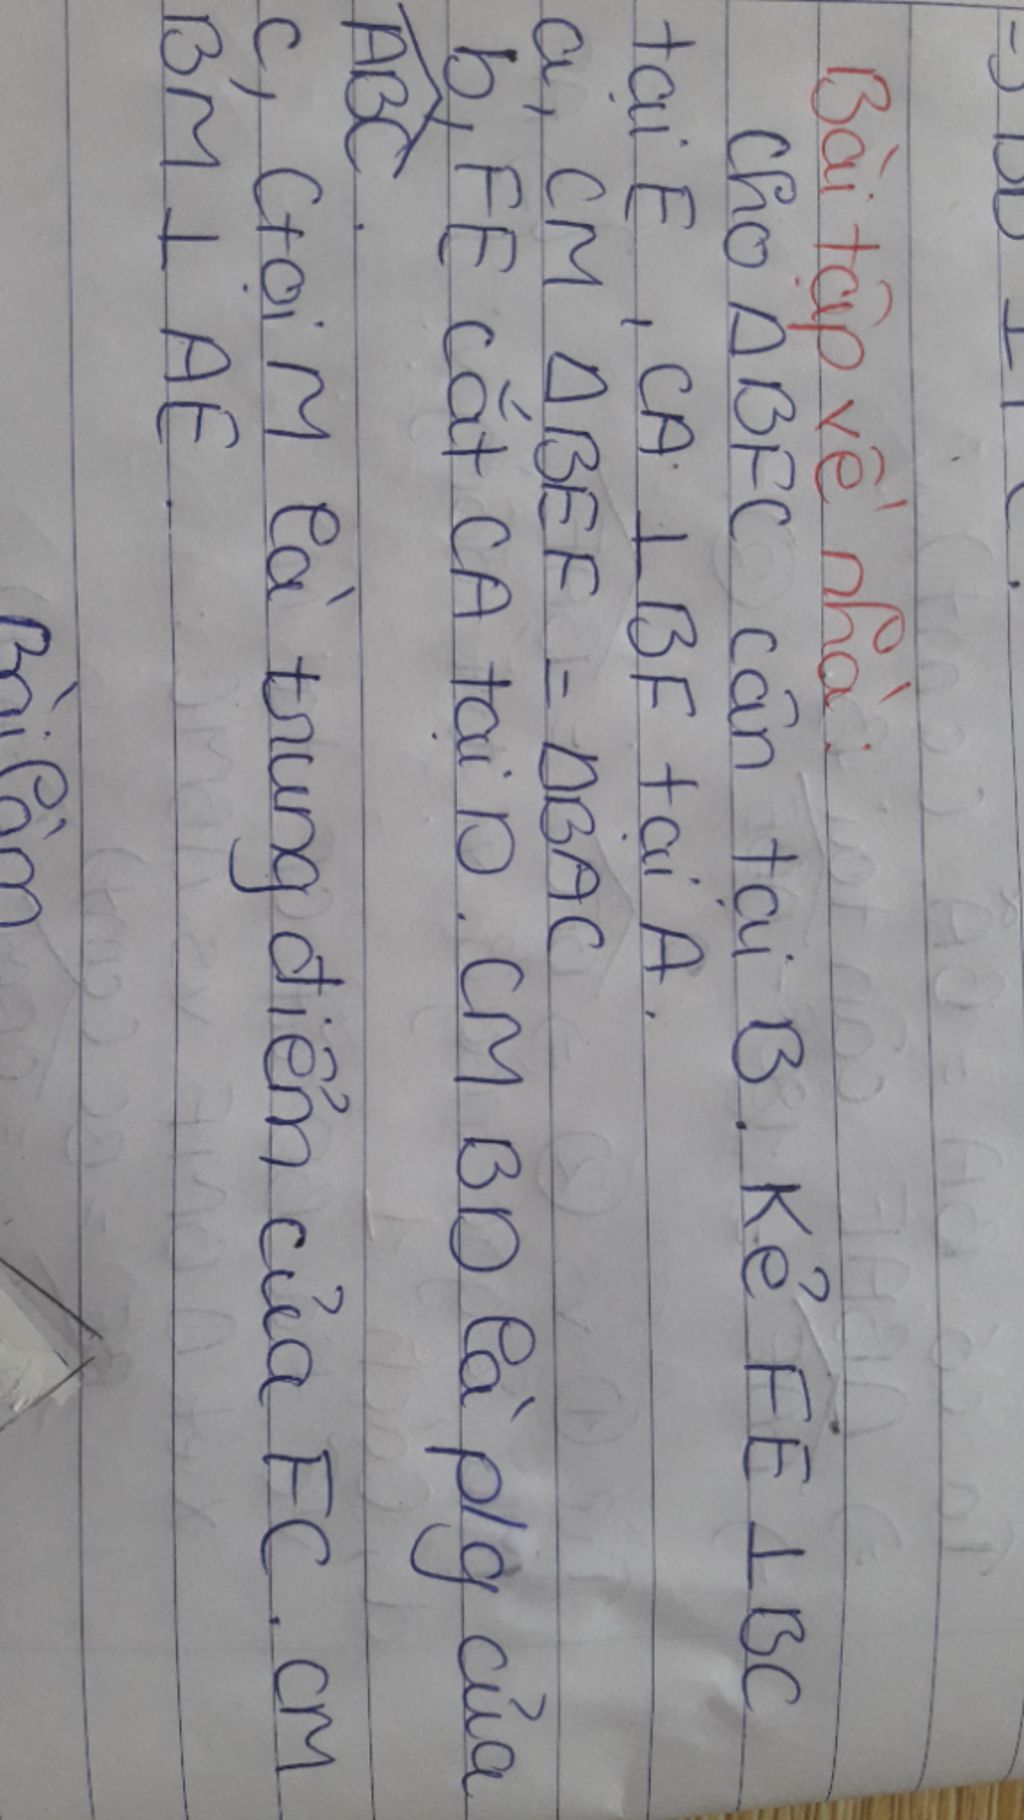 Bài tập về nhà:
Cho ΔBFC cân tại B. Kẻ FE ⊥ BC
tại E, CA ⊥ BF tại A.
a, CM ΔBEF = ΔBAC
b, FE cắt CA tại D. CM BD là p/g của
ABC.
c, Gọi M là trung điểm của FC. CM
BM ⊥ AE.
Bài làm